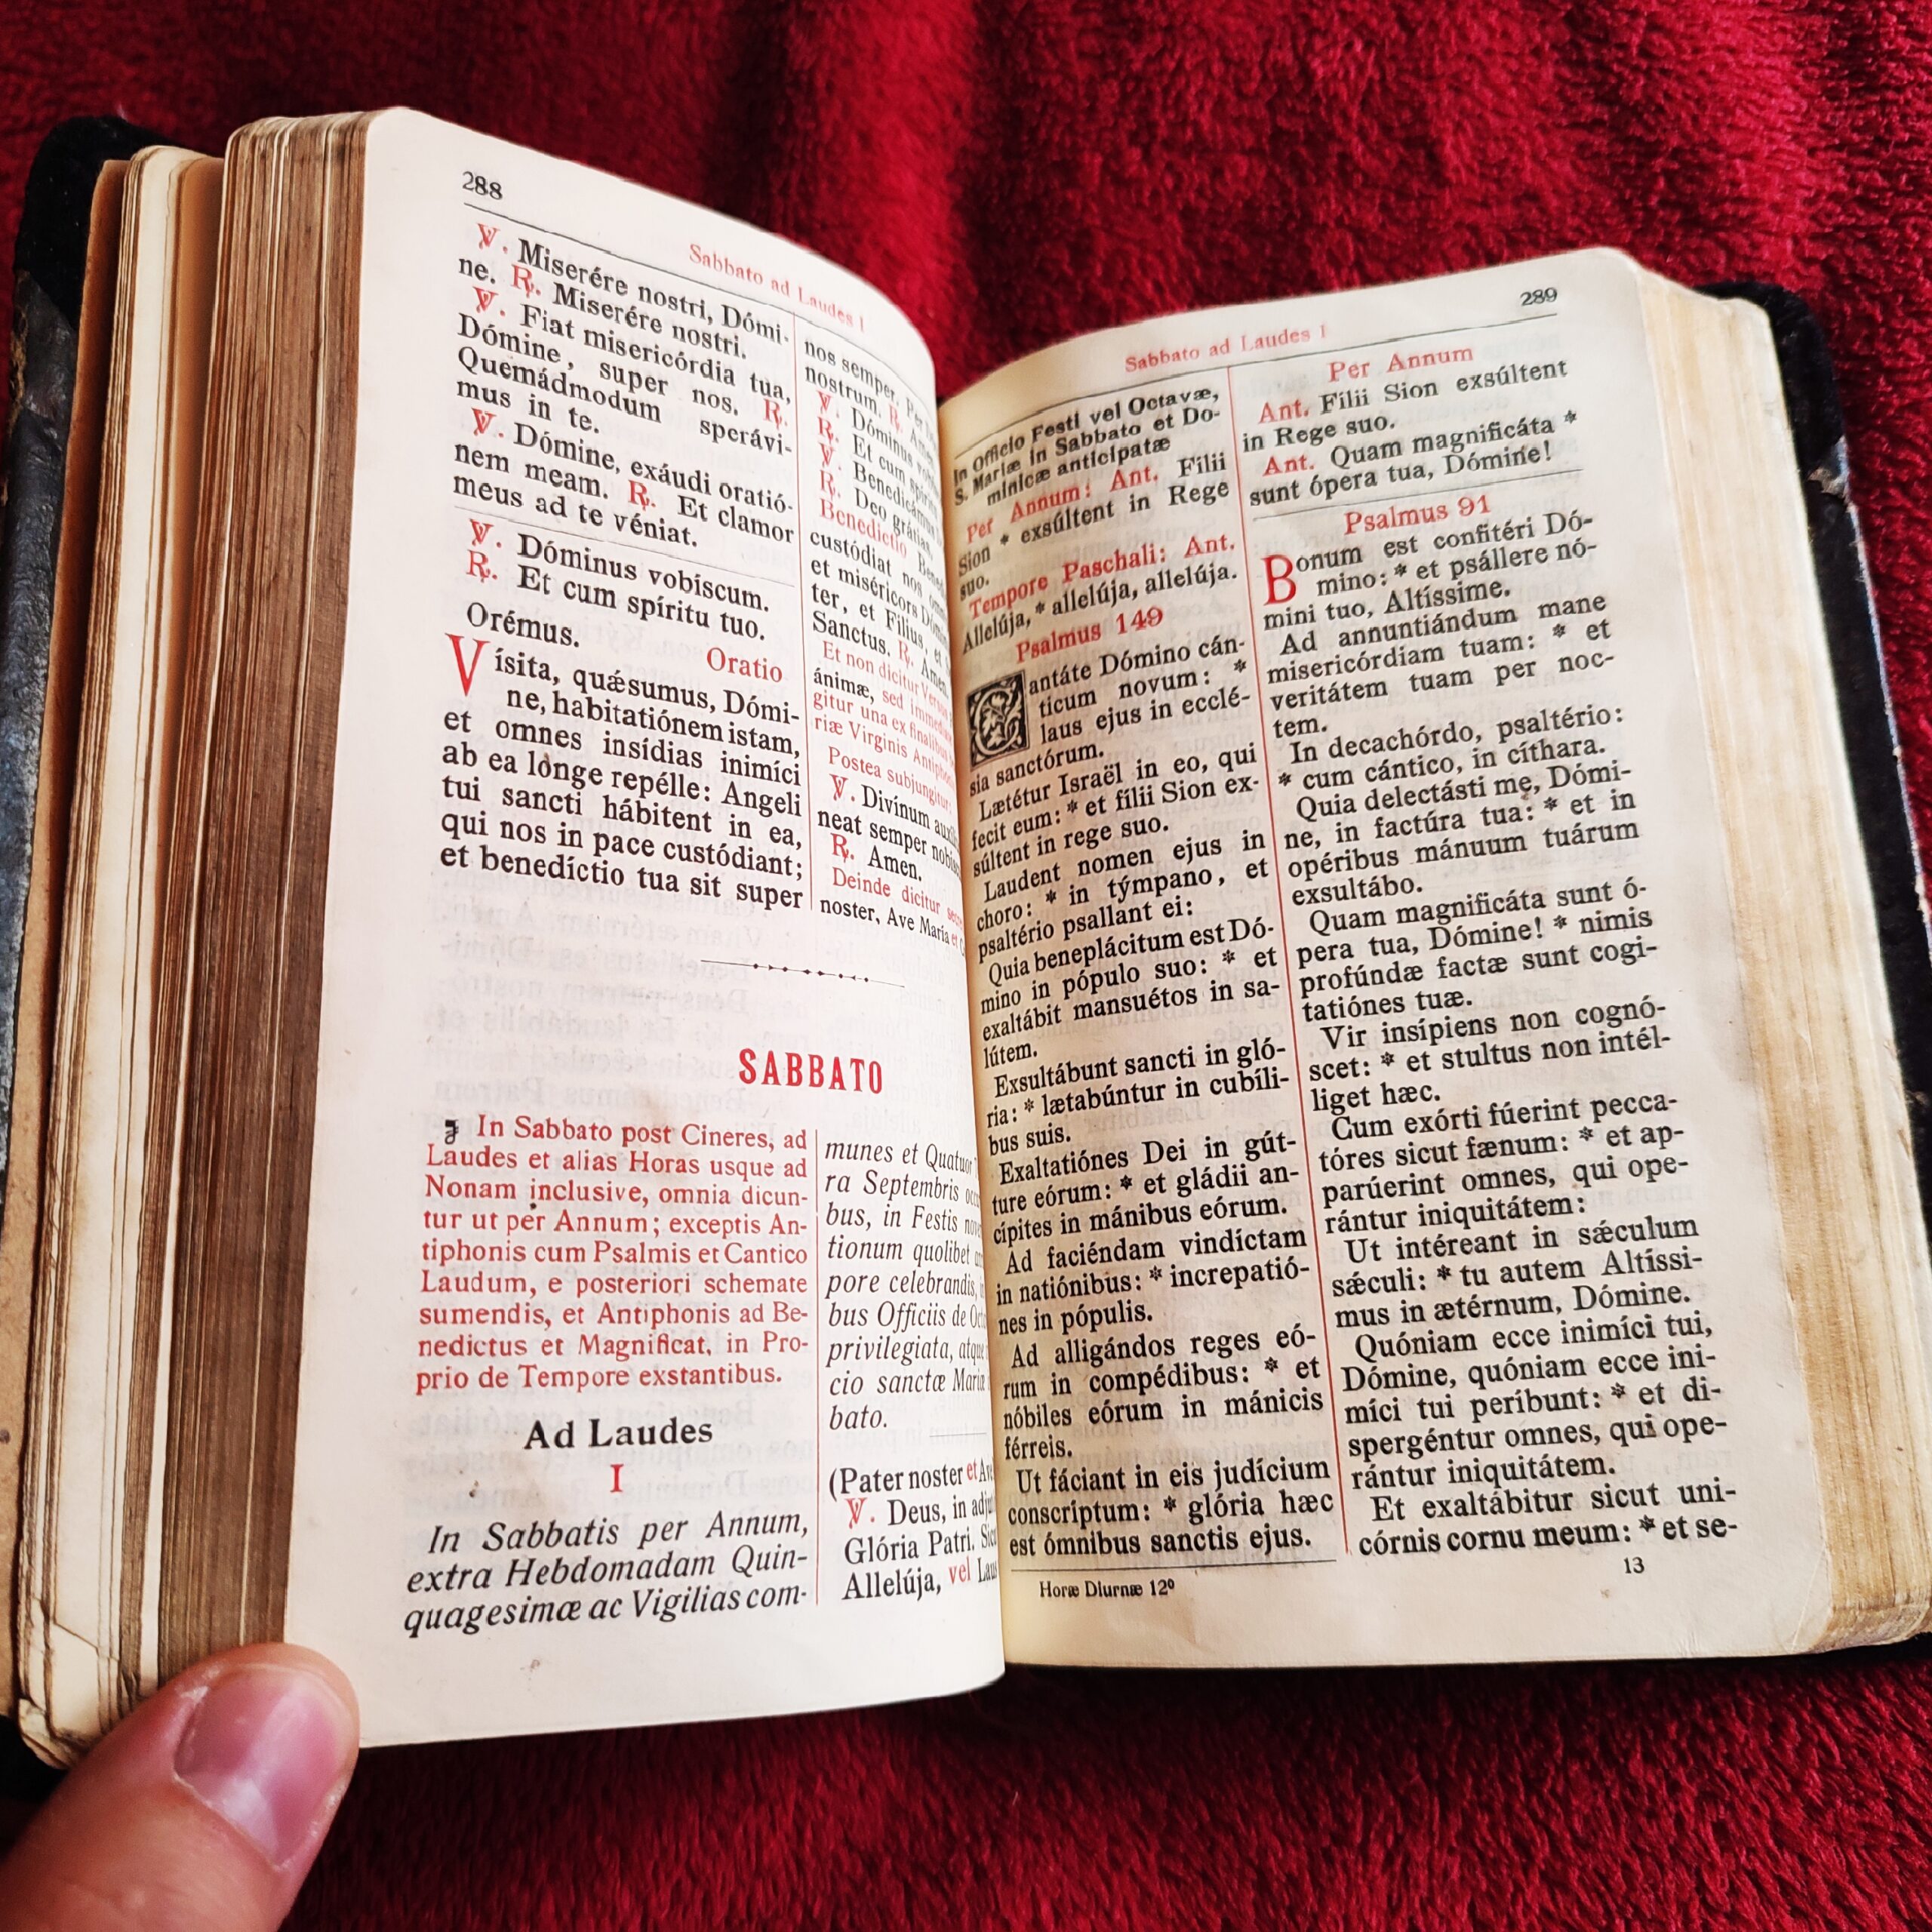 288
Sabbato ad Laudes I
℣. Miserére nostri, Dómi-
ne. ℟. Miserére nostri.
℣. Fiat misericórdia tua,
Dómine, super nos. ℟.
Quemádmodum sperávi-
mus in te.
℣. Dómine, exáudi oratió-
nem meam. ℟. Et clamor
meus ad te véniat.
℣. Dóminus vobíscum.
℟. Et cum spíritu tuo.
Orémus.
Oratio
Vísita, quǽsumus, Dómi-
ne, habitatiónem istam,
et omnes insídias inimíci
ab ea longe repélle: Angeli
tui sancti hábitent in ea,
qui nos in pace custódiant;
et benedíctio tua sit super
nos semper. Per
nostrum. ℟.
℣. Dóminus
℟. Et cum
℣.
℟. Deo grátias.
Benedictio
custódiat nos
et miséricors
ter, et Fílius, et
Sanctus. ℟. Amen.
Et non dicitur
ánimæ, sed
gitur una ex
riæ Virginis
Postea subjungitur
℣. Divínum
neat semper
℟. Amen.
Deinde dicitur
noster, Ave María et
SABBATO
In Sabbato post Cineres, ad
Laudes et alias Horas usque ad
Nonam inclusive, omnia dicun-
tur ut per Annum; exceptis An-
tiphonis cum Psalmis et Cantico
Laudum, e posteriori schemate
sumendis, et Antiphonis ad Be-
nedictus et Magnificat, in Pro-
prio de Tempore exstantibus.
Ad Laudes
I
In Sabbatis per Annum,
extra Hebdomadam Quin-
quagesimæ ac Vigilias com-
munes et Quatuor
ra Septembris
bus, in Festis
tionum quolibet
pore celebrandis,
bus Officiis de
privilegiata, atque
cio sanctæ Mariæ
bato.
(Pater noster et
℣. Deus, in
Glória Patri.
Allelúja, vel
289
Sabbato ad Laudes I
In Officio Festi vel Octavæ,
S. Mariæ in Sabbato et Do-
minicæ anticipatæ
Per Annum: Ant. Fílii
Sion * exsúltent in Rege
suo.
Tempore Paschali: Ant.
Allelúja, * allelúja, allelúja.
Psalmus 149
Cantáte Dómino cán-
ticum novum: *
laus ejus in ecclé-
sia sanctórum.
Lætétur Israël in eo, qui
fecit eum: * et fílii Sion ex-
súltent in rege suo.
Laudent nomen ejus in
choro: * in týmpano, et
psaltério psallant ei:
Quia beneplácitum est Dó-
mino in pópulo suo: * et
exaltábit mansuétos in sa-
lútem.
Exsultábunt sancti in gló-
ria: * lætabúntur in cubíli-
bus suis.
Exaltatiónes Dei in gút-
ture eórum: * et gládii an-
cípites in mánibus eórum.
Ad faciéndam vindíctam
in natiónibus: * increpatió-
nes in pópulis.
Ad alligándos reges eó-
rum in compédibus: * et
nóbiles eórum in mánicis
férreis.
Ut fáciant in eis judícium
conscríptum: * glória hæc
est ómnibus sanctis ejus.
Per Annum
Ant. Fílii Sion exsúltent
in Rege suo.
Ant. Quam magnificáta *
sunt ópera tua, Dómine!
Psalmus 91
Bonum est confitéri Dó-
mino: * et psállere nó-
mini tuo, Altíssime.
Ad annuntiándum mane
misericórdiam tuam: * et
veritátem tuam per noc-
tem.
In decachórdo, psaltério:
* cum cántico, in cíthara.
Quia delectásti me, Dómi-
ne, in factúra tua: * et in
opéribus mánuum tuárum
exsultábo.
Quam magnificáta sunt ó-
pera tua, Dómine! * nimis
profúndæ factæ sunt cogi-
tatiónes tuæ.
Vir insípiens non cognó-
scet: * et stultus non intél-
liget hæc.
Cum exórti fúerint pecca-
tóres sicut fænum: * et ap-
parúerint omnes, qui ope-
rántur iniquitátem:
Ut intéreant in sǽculum
sǽculi: * tu autem Altíssi-
mus in ætérnum, Dómine.
Quóniam ecce inimíci tui,
Dómine, quóniam ecce ini-
míci tui períbunt: * et di-
spergéntur omnes, qui ope-
rántur iniquitátem.
Et exaltábitur sicut uni-
córnis cornu meum: * et se-
Horæ Diurnæ 12º
13